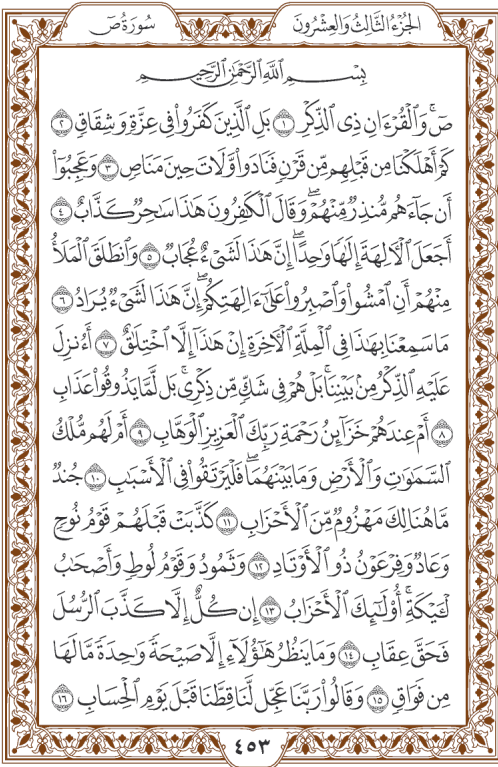 الجُزْءُ الثَّالِثُ وَالعِشْرُونَ
سُورَةُ صٓ
بِسْمِ اللَّهِ الرَّحْمَٰنِ الرَّحِيمِ
صٓۚ وَالْقُرْءَانِ ذِي الذِّكْرِ ١ بَلِ الَّذِينَ كَفَرُوا فِي عِزَّةٍ وَشِقَاقٍ ٢
كَمْ أَهْلَكْنَا مِن قَبْلِهِم مِّن قَرْنٍ فَنَادَوا وَّلَاتَ حِينَ مَنَاصٍ ٣ وَعَجِبُوٓا
أَن جَآءَهُم مُّنذِرٌ مِّنْهُمْۖ وَقَالَ الْكَٰفِرُونَ هَٰذَا سَٰحِرٌ كَذَّابٌ ٤
أَجَعَلَ الْءَالِهَةَ إِلَٰهًا وَٰحِدًاۖ إِنَّ هَٰذَا لَشَيْءٌ عُجَابٌ ٥ وَانطَلَقَ الْمَلَأُ
مِنْهُمْ أَنِ امْشُوا وَاصْبِرُوا عَلَىٰٓ ءَالِهَتِكُمْۖ إِنَّ هَٰذَا لَشَيْءٌ يُرَادُ ٦
مَا سَمِعْنَا بِهَٰذَا فِي الْمِلَّةِ الْءَاخِرَةِ إِنْ هَٰذَآ إِلَّا اخْتِلَٰقٌ ٧ أَءُنزِلَ
عَلَيْهِ الذِّكْرُ مِنۢ بَيْنِنَاۚ بَلْ هُمْ فِي شَكٍّ مِّن ذِكْرِيۚ بَل لَّمَّا يَذُوقُوا عَذَابِ
٨ أَمْ عِندَهُمْ خَزَآئِنُ رَحْمَةِ رَبِّكَ الْعَزِيزِ الْوَهَّابِ ٩ أَمْ لَهُم مُّلْكُ
السَّمَٰوَٰتِ وَالْأَرْضِ وَمَا بَيْنَهُمَاۖ فَلْيَرْتَقُوا فِي الْأَسْبَٰبِ ١٠ جُندٌ
مَّا هُنَالِكَ مَهْزُومٌ مِّنَ الْأَحْزَابِ ١١ كَذَّبَتْ قَبْلَهُمْ قَوْمُ نُوحٍ
وَعَادٌ وَفِرْعَوْنُ ذُو الْأَوْتَادِ ١٢ وَثَمُودُ وَقَوْمُ لُوطٍ وَأَصْحَٰبُ
لْـَٔيْكَةِۚ أُولَٰٓئِكَ الْأَحْزَابُ ١٣ إِن كُلٌّ إِلَّا كَذَّبَ الرُّسُلَ
فَحَقَّ عِقَابِ ١٤ وَمَا يَنظُرُ هَٰٓؤُلَآءِ إِلَّا صَيْحَةً وَٰحِدَةً مَّا لَهَا
مِن فَوَاقٍ ١٥ وَقَالُوا رَبَّنَا عَجِّل لَّنَا قِطَّنَا قَبْلَ يَوْمِ الْحِسَابِ ١٦
٤٥٣